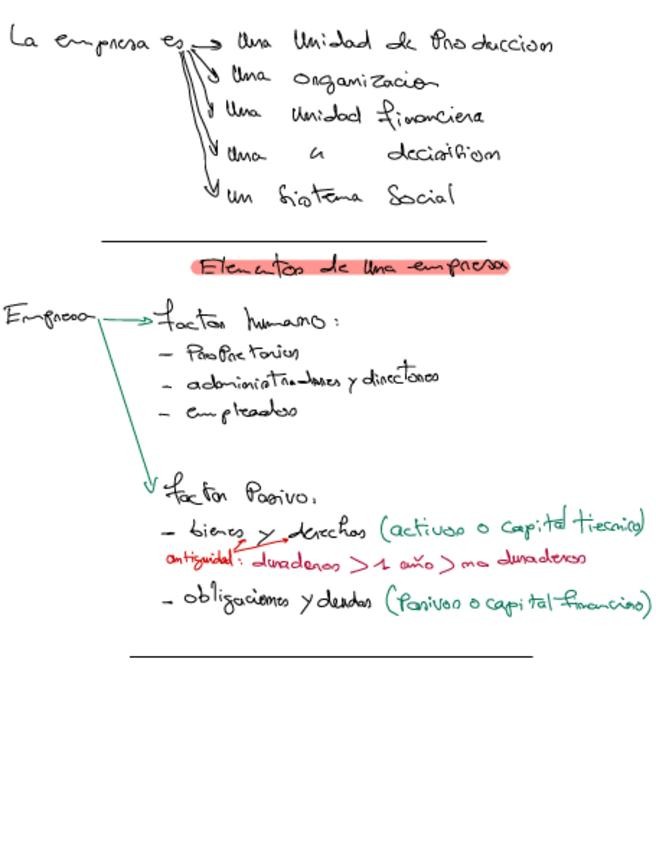 La empresa es → una Unidad de Produccion
una organizacion
una unidad financiera
una " decisition
un Sistema Social
Elementos de una empresa
Empresa → factor humano :
- Propietarios
- administradores y directores
- empleados
factor Pasivo.
- bienes y derechos (activos o capital tiecnico)
antiguidad : duraderos > 1 año > no duraderos
- obligaciones y deudas (Pasivos o capital financiero)